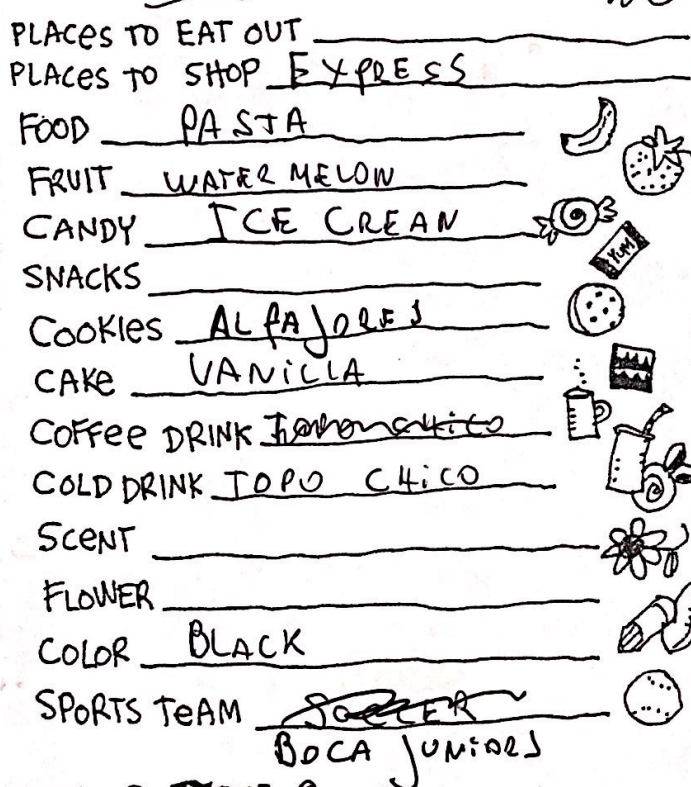 PLACES TO EAT OUT
PLACES TO SHOP EXPRESS
FOOD PASTA
FRUIT WATER MELON
CANDY ICE CREAN
YUM
SNACKS
COOKIES ALFAJORES
CAKE VANILLA
COFFEE DRINK
COLD DRINK TOPO CHICO
SCENT
FLOWER
COLOR BLACK
SPORTS TEAM SOCCER
BOCA JUNIORS